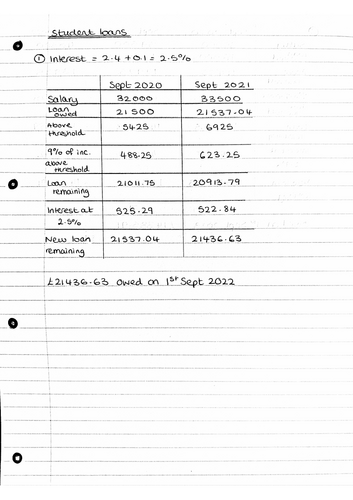 Student loans
① Interest = 2.4 + 0.1 = 2.5%
Sept 2020 Sept 2021
Salary 32000 33500
Loan owed 21500 21537.04
Above threshold 5425 6925
9% of inc. above threshold 488.25 623.25
Loan remaining 21011.75 20913.79
Interest at 2.5% 525.29 522.84
New loan remaining 21537.04 21436.63
£21436.63 owed on 1st Sept 2022